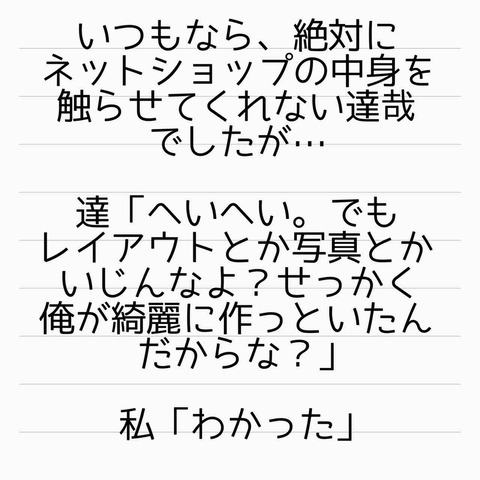 いつもなら、絶対に
ネットショップの中身を
触らせてくれない達哉
でしたが…
達「へいへい。でも
レイアウトとか写真とか
いじんなよ？せっかく
俺が綺麗に作っといたん
だからな？」
私「わかった」